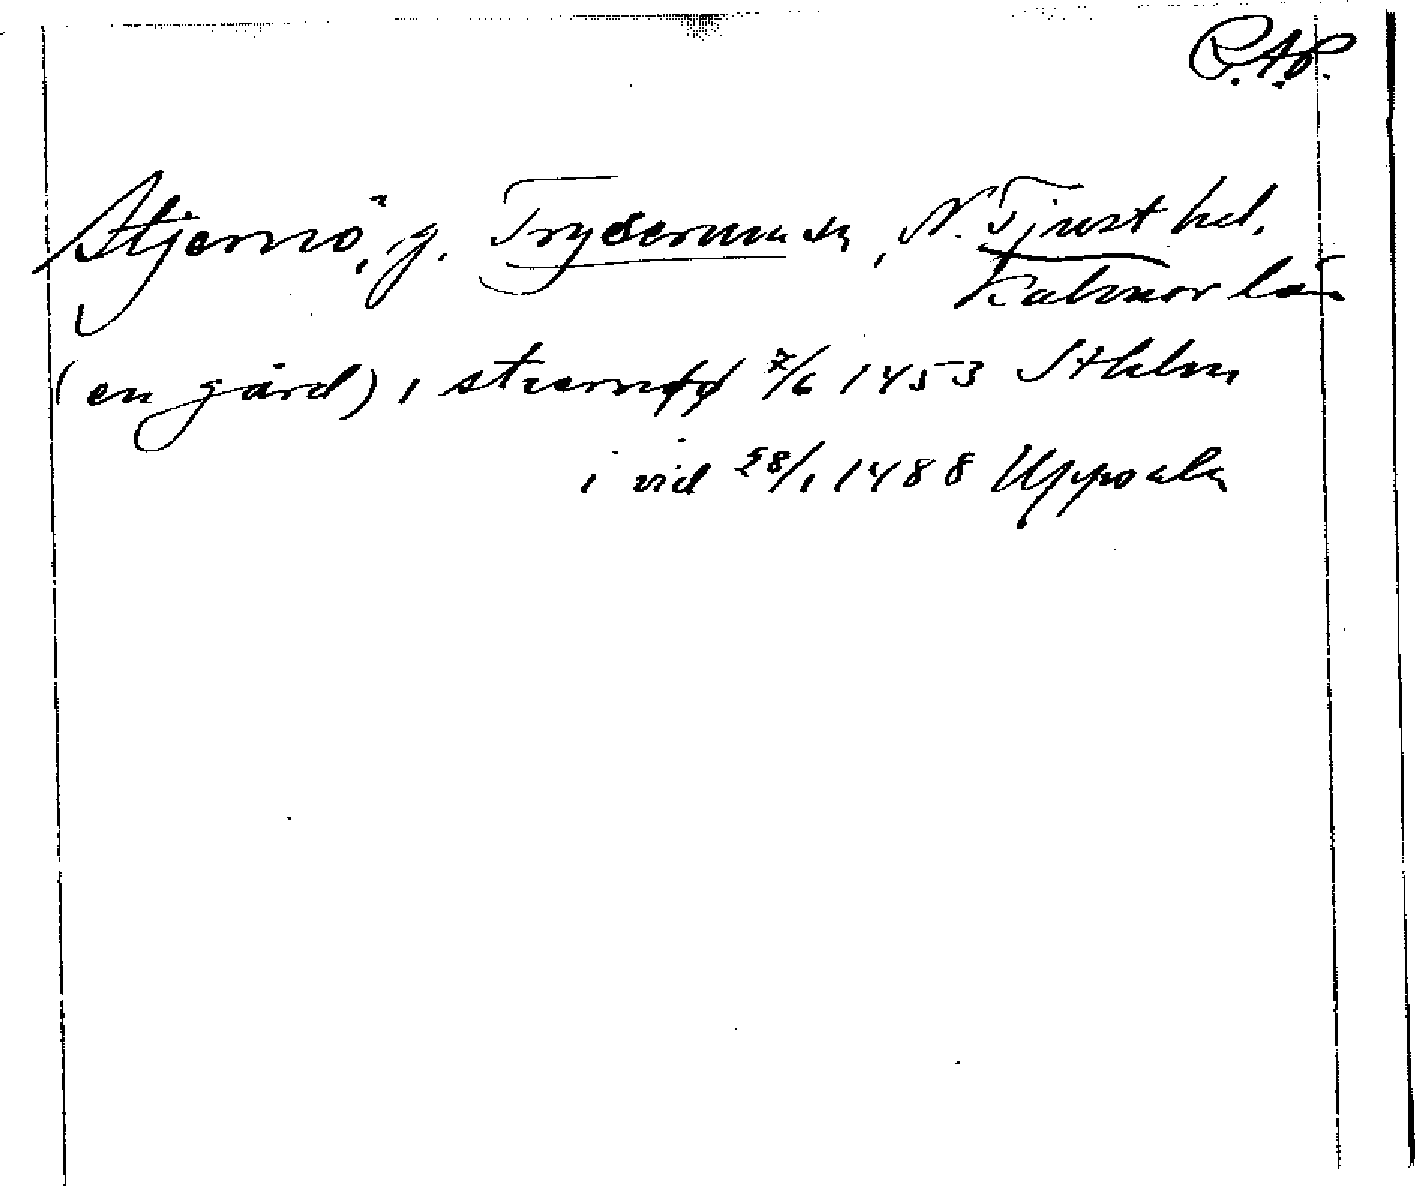 R.A.P.
Stjernö, g. Tryserums sn, N. Tjust hd.
Kalmar län
(en gård), i stiernøø 7/6 1453 Sthlm
i vid 28/1 1488 Uppsala